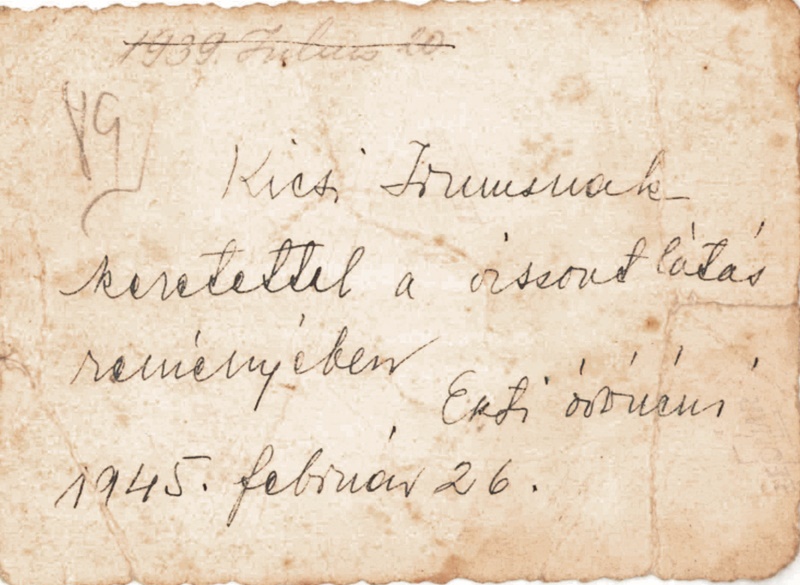 1939. Julius 20
Kicsi Irmusnak
keretettel a vissont látás
reményében
Ekti óvónéni
1945. február 26.